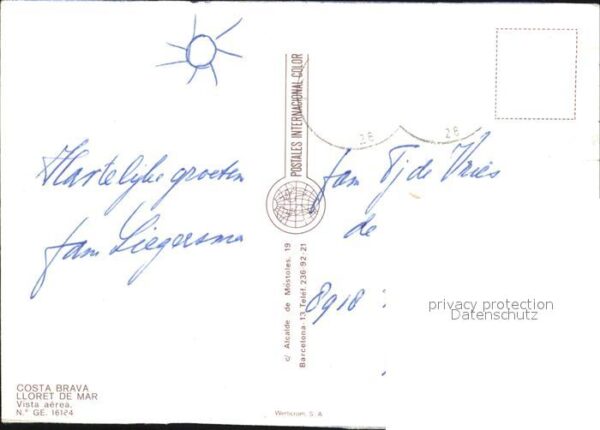 Hartelijke groeten
fam Siegersma
POSTALES INTERNACIONAL COLOR
c/ Alcalde de Móstoles, 19
Barcelona-13 Teléf. 236-92-21
28
28
fam Tj de Vries
de
8918
privacy protection
Datenschutz
COSTA BRAVA
LLORET DE MAR
Vista aérea.
N.º GE. 16124